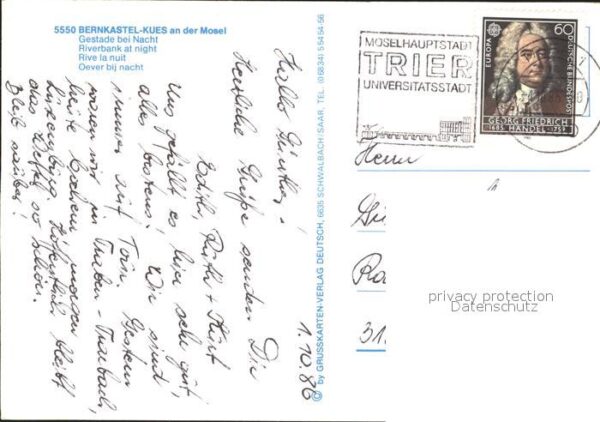 5550 BERNKASTEL-KUES an der Mosel
Gestade bei Nacht
Riverbank at night
Rive la nuit
Oever bij nacht
Hallo Günther!
Herzliche Grüße senden Dir
Edith, Ruth + Kurt
Uns gefällt es hier sehr gut,
alles bestens! Wir sind
immer auf Tour. Gestern
waren wir in Traben-Trarbach,
heute Cochem, morgen
Luxemburg. Hoffentlich bleibt
das Wetter so schön.
Bleib sauber!
1.10.86
© by GRUSSKARTEN-VERLAG DEUTSCH, 6635 SCHWALBACH/SAAR, TEL. (06834) 55454-56
MOSELHAUPTSTADT
TRIER
UNIVERSITÄTSSTADT
EUROPA
60
DEUTSCHE BUNDESPOST
GEORG FRIEDRICH
1685 HÄNDEL 1759
Herrn
31
privacy protection
Datenschutz